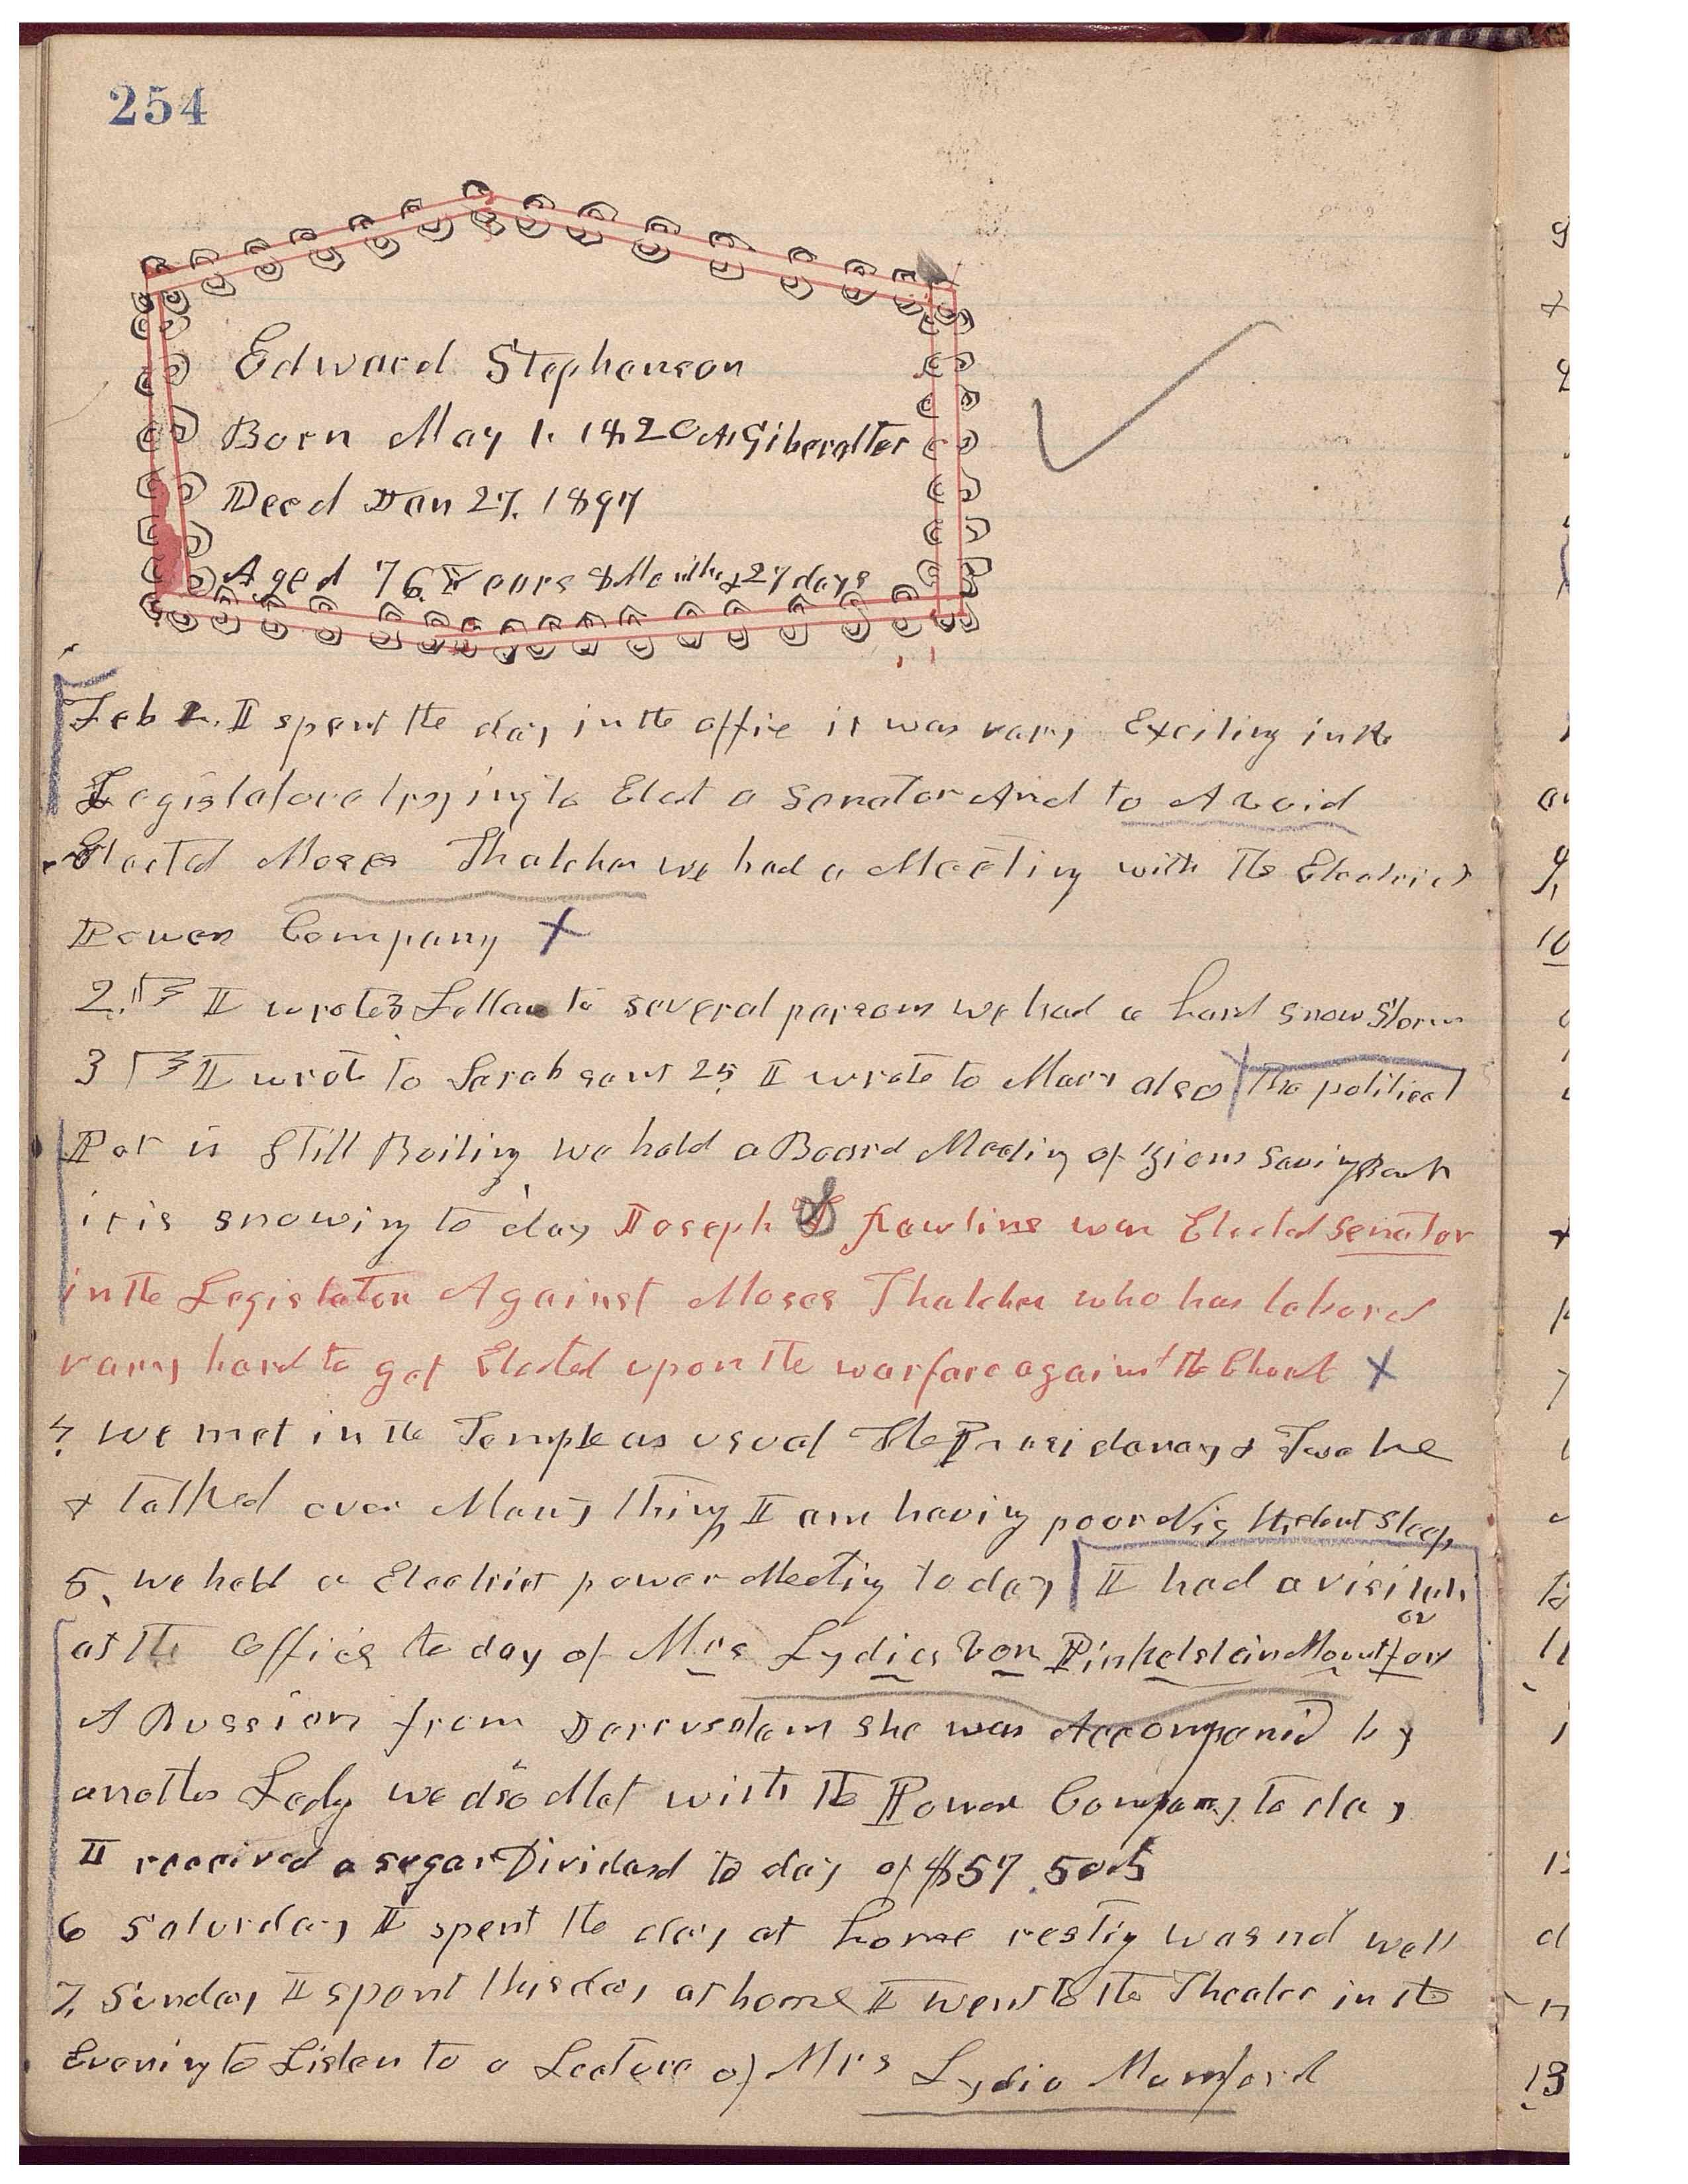 254
Edward Stephenson
Born May 1. 1820 At Giberalter
Deed Jan 27. 1897
Aged 76 Years 8 Months & 27 days
Feb 1. I spent the day in the office it was vary Exciting in the
Legislature trying to Elect a Senator And to Avoid
Elected Moses Thatcher we had a Meeting with the Electrict
Power Company X
2. I wrote 3 Letters to several persons we had a hard snow Storm
3 I wrote to Sarah sent 25 I wrote to Mary also The political
Pot is Still Boiling we held a Board Meeting of Zions Saving Bank
it is snowing to day Joseph L Rawlins was Elected Senator
in the Legislature Against Moses Thatcher who has labored
vary hard to get Elected upon the warfare against the Church X
4 We met in the Temple as usual The Presidency & Twelve
& talked over Many things I am having poor Nights without Sleep
5. we held a Electrict power Meeting to day I had a visit
at the Office to day of Mrs Lydia Von Finkelstein Mountford
A Russian from Jerusalem she was Accompanid by
another Lady we also Met with the Power Company to day
I received a sugar Dividend to day of $57.50
6 Saturday I spent the day at home resting was not well
7. Sunday I spent this day at home I went to the Theater in the
Evening to Listen to a Lecture of Mrs Lydia Mumford